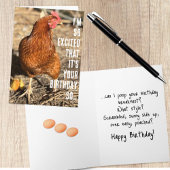 I'M
SO
EXCITED
THAT
IT'S
YOUR
BIRTHDAY
SO...
...can I poop your birthday
breakfast?
What style?
Scrambled, sunny side up,
over easy, poached?
Happy Birthday!